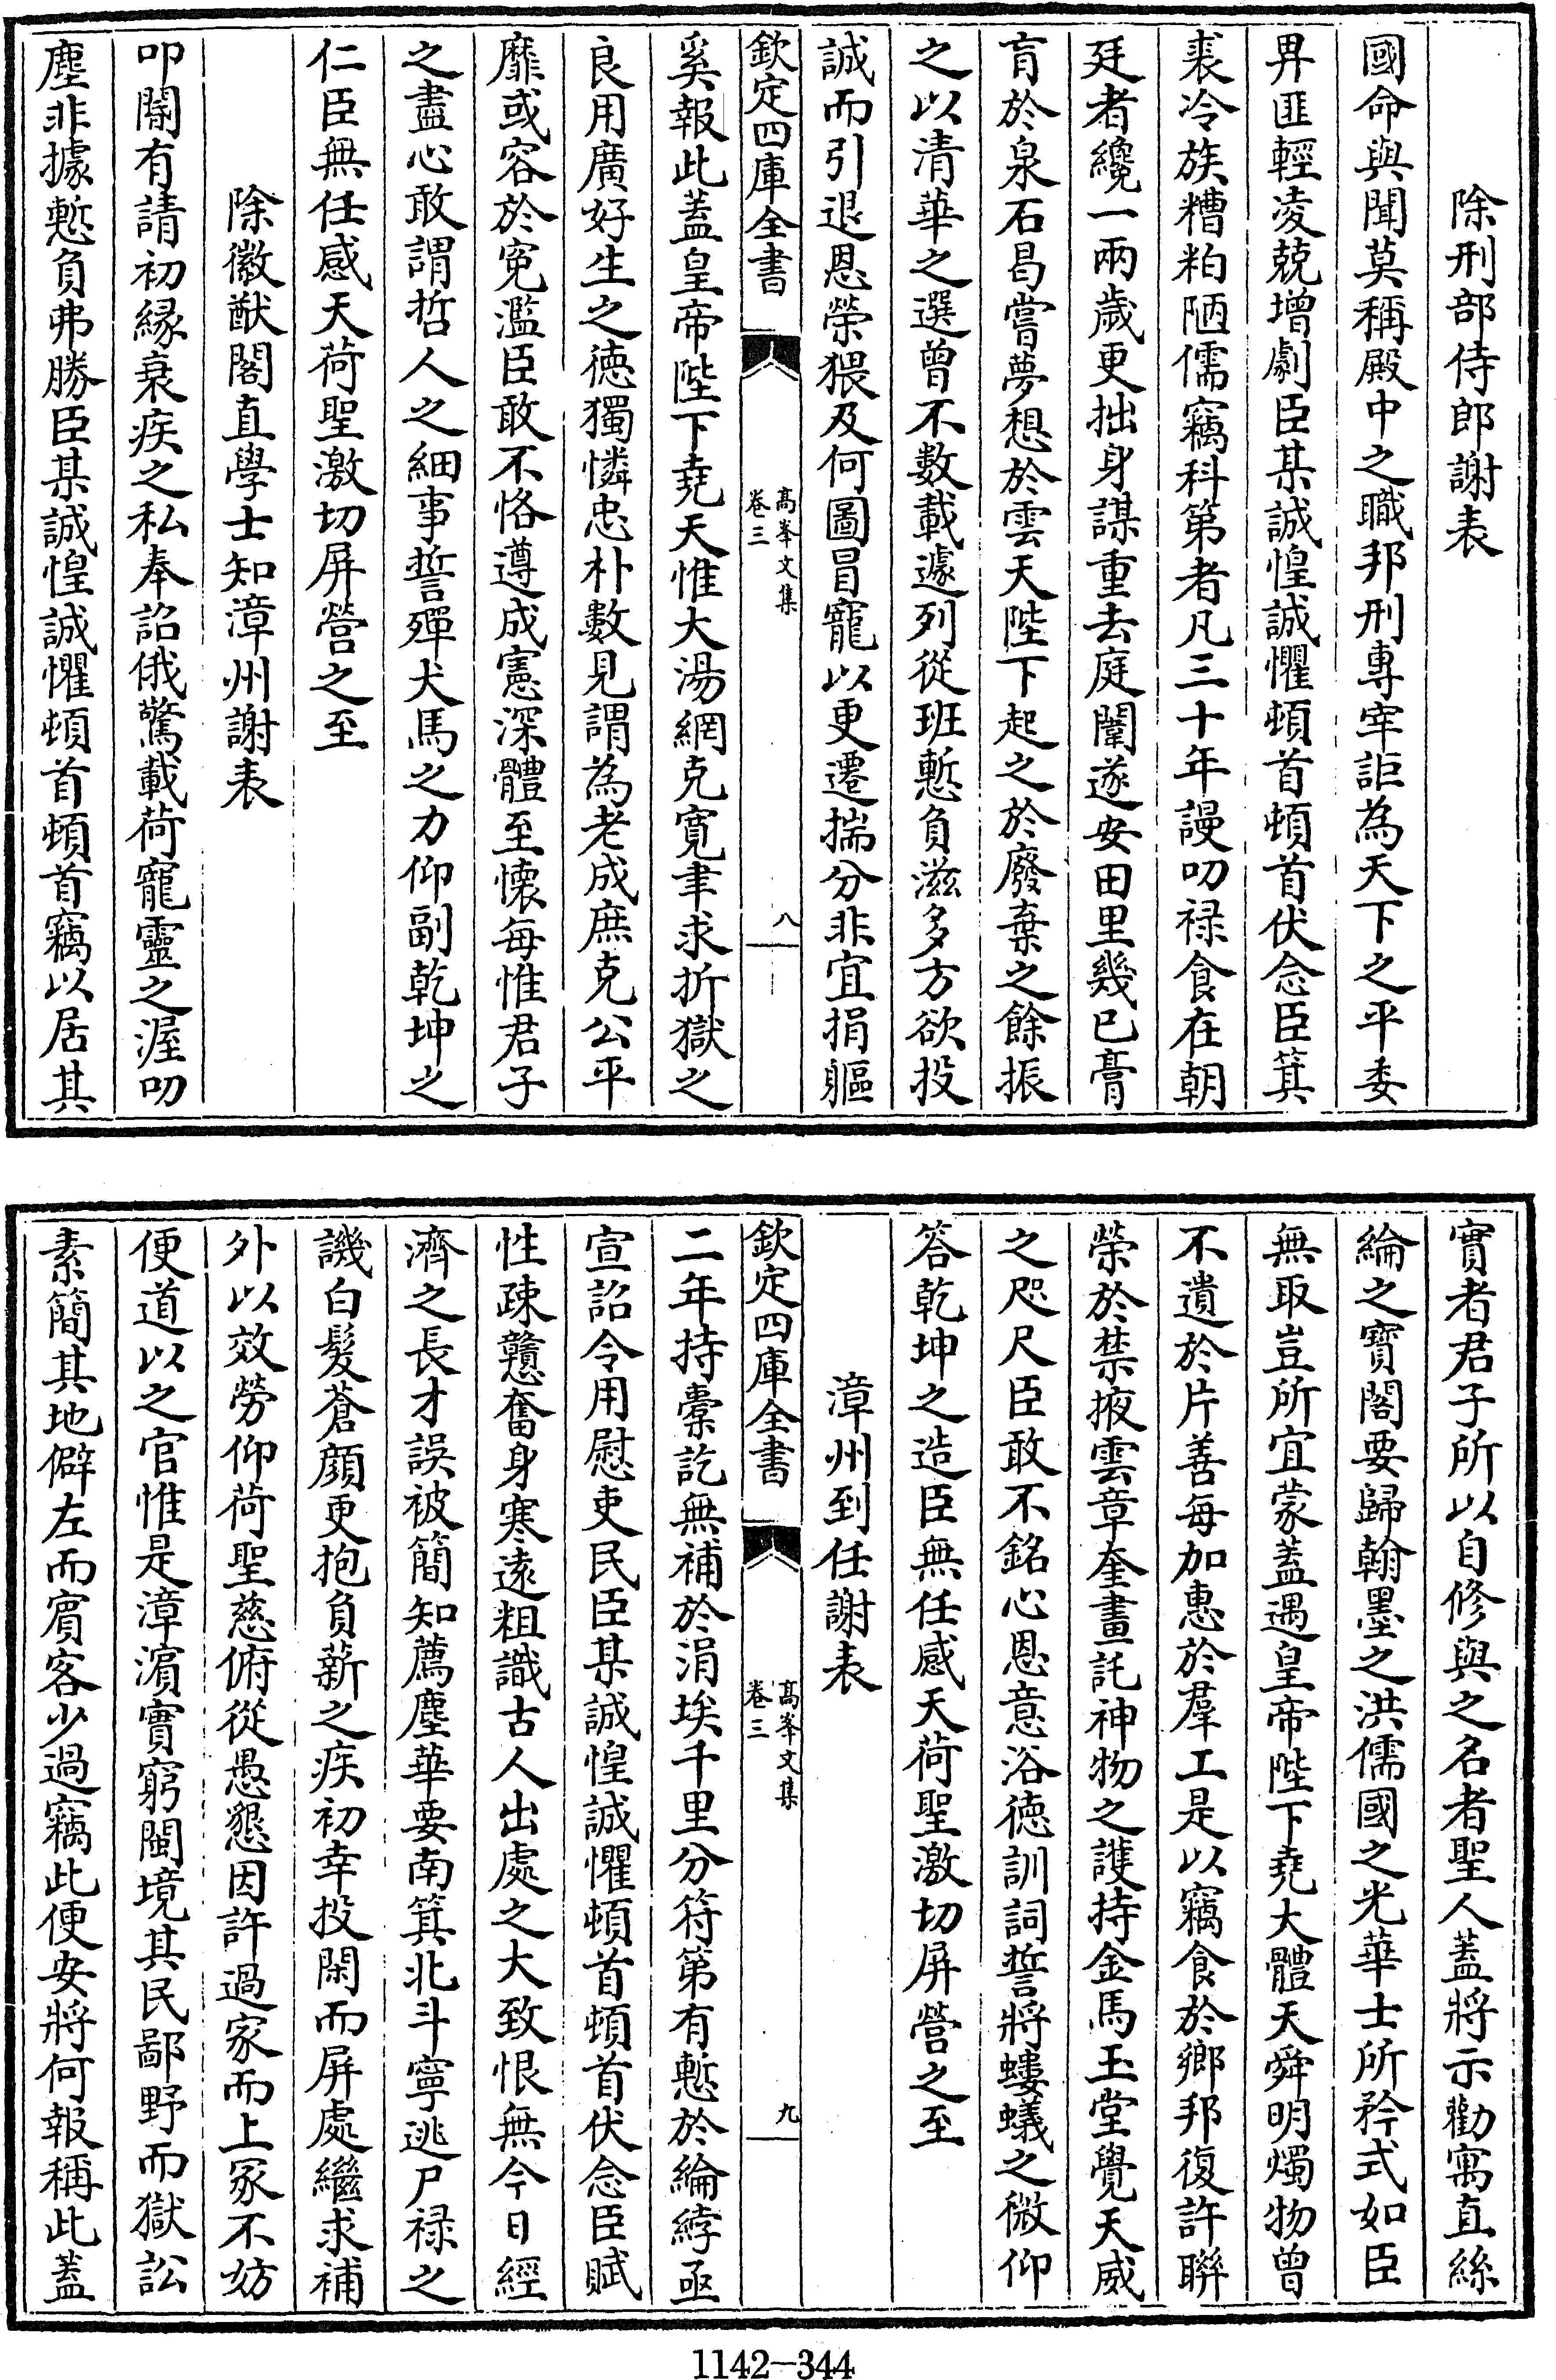 除刑部侍郎謝表
國命與聞莫稱殿中之職邦刑專宰詎為天下之平委
畀匪輕凌兢增劇臣某誠惶誠懼頓首頓首伏念臣箕
裘冷族糟粕陋儒竊科第者凡三十年謾叨禄食在朝
廷者纔一兩歲更拙身謀重去庭闈遂安田里幾已膏
肓於泉石曷嘗夢想於雲天陛下起之於廢棄之餘振
之以清華之選曾不數載遽列從班慙負滋多方欲投
誠而引退恩榮猥及何圖冒寵以更遷揣分非宜捐軀
欽定四庫全書
高峯文集
卷三
八
奚報此蓋皇帝陛下堯天惟大湯網克寛聿求折獄之
良用廣好生之徳獨憐忠朴數見謂為老成庶克公平
靡或容於寃濫臣敢不恪遵成憲深體至懐每惟君子
之盡心敢謂哲人之細事誓殫犬馬之力仰副乾坤之
仁臣無任感天荷聖激切屏營之至
除徽猷閣直學士知漳州謝表
叩閽有請初縁衰疾之私奉詔俄驚載荷寵靈之渥叨
塵非據慙負弗勝臣某誠惶誠懼頓首頓首竊以居其
實者君子所以自修與之名者聖人蓋將示勸寓直絲
綸之寶閣要歸翰墨之洪儒國之光華士所矜式如臣
無取豈所宜蒙蓋遇皇帝陛下堯大體天舜明燭物曾
不遺於片善每加惠於羣工是以竊食於鄉邦復許聨
榮於禁掖雲章奎畫託神物之護持金馬玉堂覺天威
之咫尺臣敢不銘心恩意浴徳訓詞誓將螻蟻之微仰
答乾坤之造臣無任感天荷聖激切屏營之至
漳州到任謝表
欽定四庫全書
高峯文集
卷三
九
二年持橐訖無補於涓埃千里分符第有慙於綸綍亟
宣詔令用慰吏民臣某誠惶誠懼頓首頓首伏念臣賦
性疎戇奮身寒遠粗識古人出處之大致恨無今日經
濟之長才誤被簡知薦塵華要南箕北斗寧逃尸禄之
譏白髮蒼顔更抱負薪之疾初幸投閑而屏處繼求補
外以效勞仰荷聖慈俯從愚懇因許過家而上冢不妨
便道以之官惟是漳濵實窮閩境其民鄙野而獄訟
素簡其地僻左而賓客少過竊此便安將何報稱此蓋
1142-344